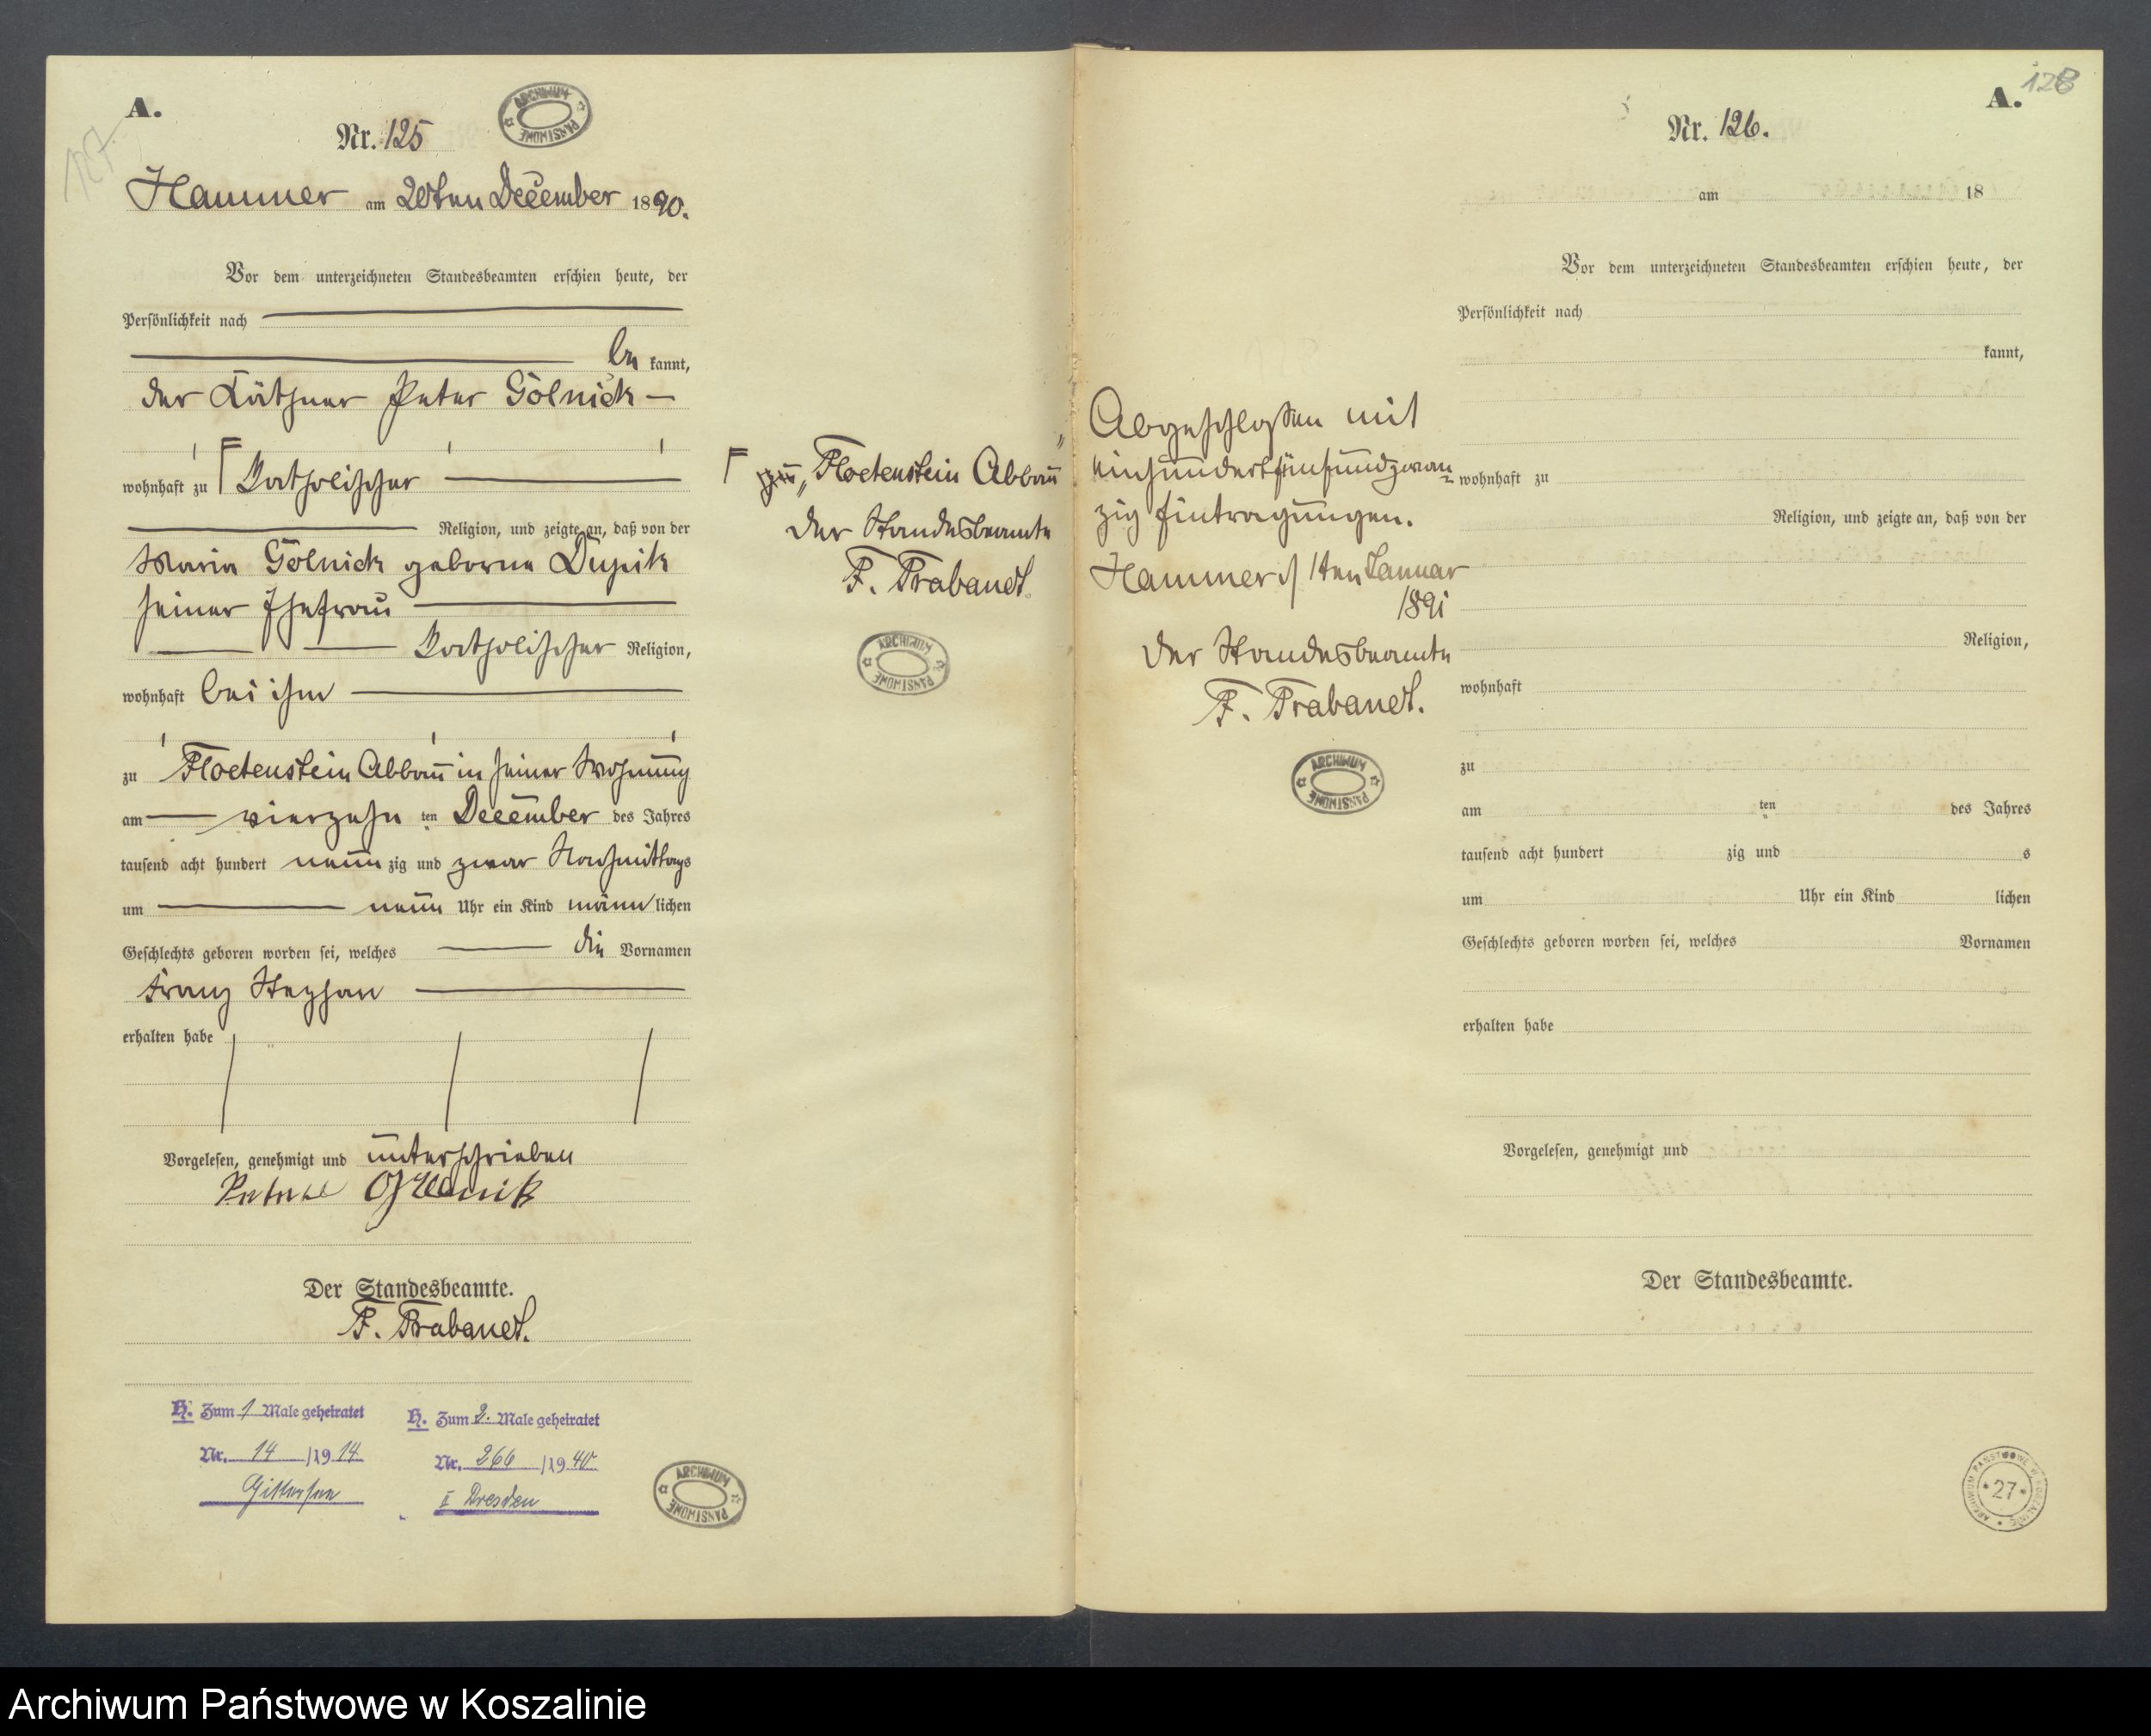 A.
127.
Nr. 125
ARCHIWUM PAŃSTWOWE
Hammer am 20ten December 1890.
Vor dem unterzeichneten Standesbeamten erschien heute, der
Persönlichkeit nach
be kannt,
der Käthner Peter Golnick
wohnhaft zu Katholischer
Religion, und zeigte an, daß von der
Maria Golnick geborne
seiner Ehefrau
Katholischer Religion,
wohnhaft bei ihm
zu Floetenstein Abbau in seiner Wohnung
am vierzehn ten December des Jahres
tausend acht hundert neun zig und zwar Nachmittags
um neun Uhr ein Kind männ lichen
Geschlechts geboren worden sei, welches die Vornamen
Franz Stephan
erhalten habe
Vorgelesen, genehmigt und unterschrieben
Der Standesbeamte.
F. Trabandt.
H. Zum 1 Male geheiratet
Nr. 14 /19 14
Gittersee
H. Zum 2. Male geheiratet
Nr. 266 /19 40
I Dresden
ARCHIWUM PAŃSTWOWE
zu „Floetenstein Abbau“
Der Standesbeamte
F. Trabandt.
ARCHIWUM PAŃSTWOWE
Abgeschlossen mit
einhundertfünfundzwan
zig Eintragungen.
Hammer d/ 1ten Januar
1891
Der Standesbeamte
F. Trabandt.
ARCHIWUM PAŃSTWOWE
128
A.
Nr. 126.
am 18
Vor dem unterzeichneten Standesbeamten erschien heute, der
Persönlichkeit nach
kannt,
wohnhaft zu
Religion, und zeigte an, daß von der
Religion,
wohnhaft
zu
am ten des Jahres
tausend acht hundert zig und s
um Uhr ein Kind lichen
Geschlechts geboren worden sei, welches Vornamen
erhalten habe
Vorgelesen, genehmigt und
Der Standesbeamte.
ARCHIWUM PAŃSTWOWE W KOSZALINIE
27
Archiwum Państwowe w Koszalinie